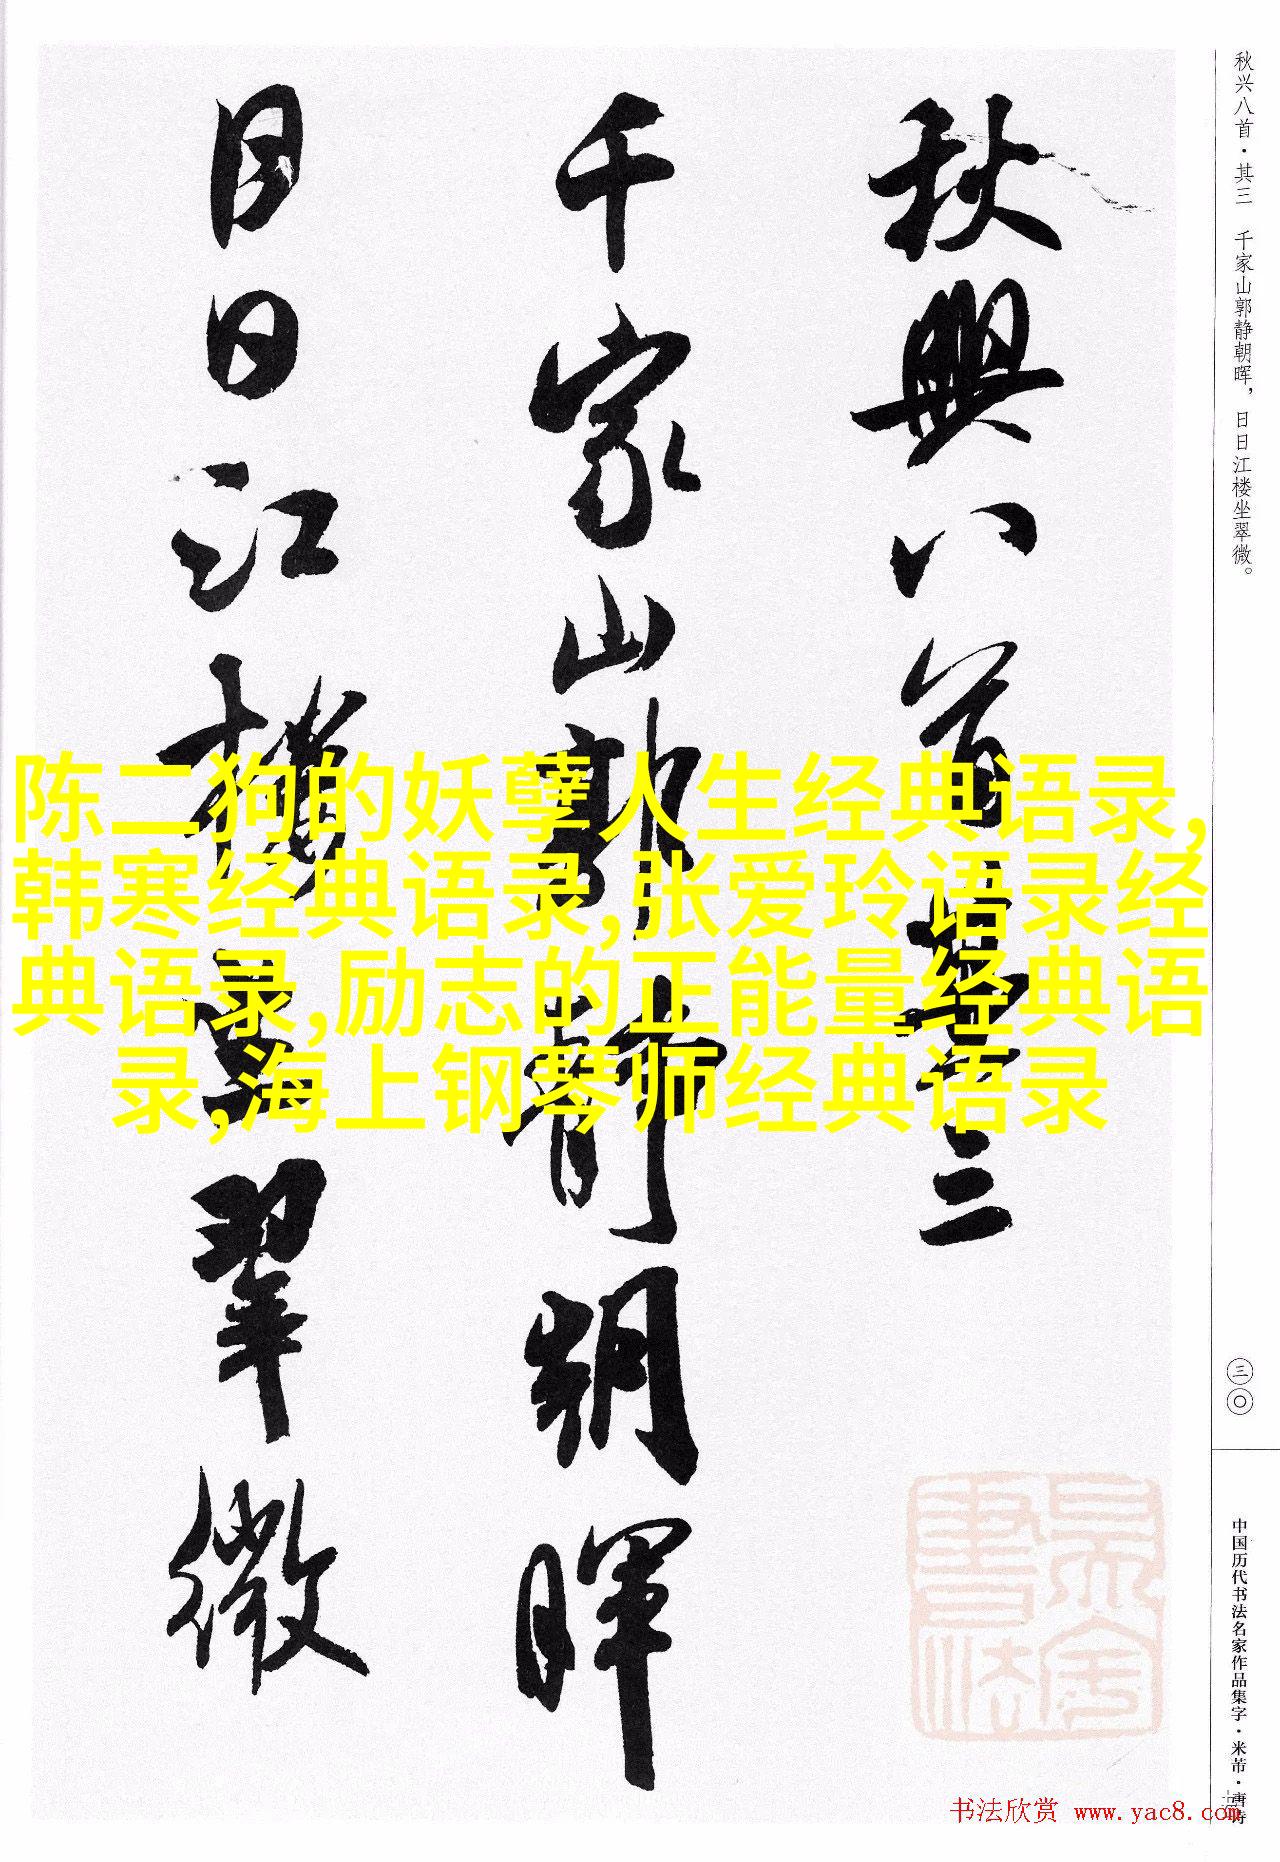 秋興八首其三
千家山郭靜朝暉
日日江樓坐翠微
秋兴八首·其三 千家山郭静朝晖，日日江楼坐翠微。
三〇
中国历代书法名家作品集字·米芾·唐诗
陈二狗的妖孽人生经典语录,
韩寒经典语录,张爱玲语录经
典语录,励志的正能量经典语
录,海上钢琴师经典语录
书法欣赏 www.yac8.com